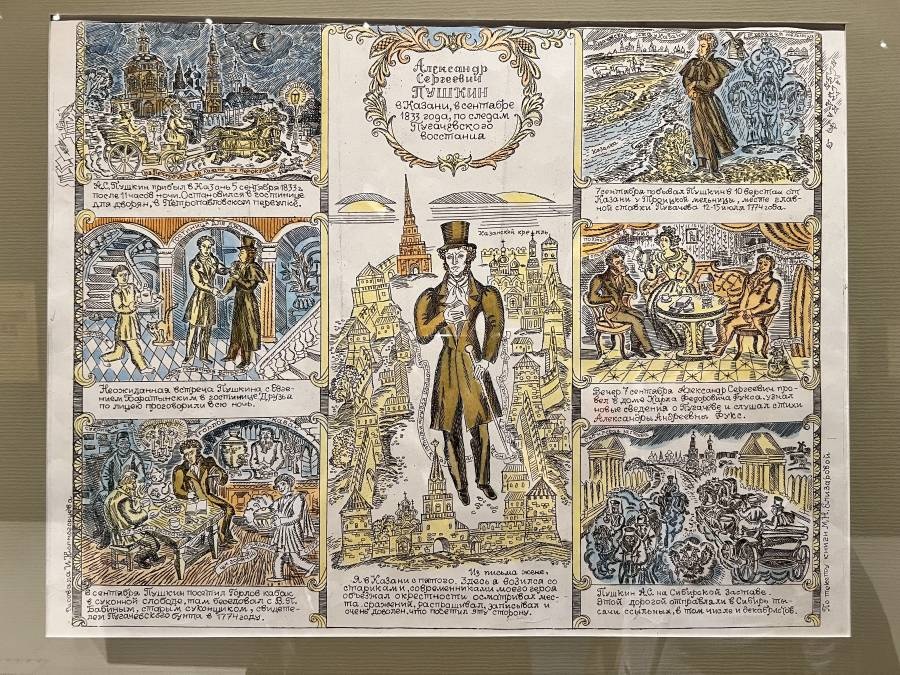 Александр
Сергеевич
ПУШКИН
в Казани, в сентябре
1833 года, по следам
Пугачёвского
восстания
А.С. Пушкин прибыл в Казань 5 сентября 1833 г.
после 11 часов ночи. Остановился в гостинице
для дворян, в Петропавловском переулке.
Неожиданная встреча Пушкина с Евге-
нием Баратынским в гостинице. Друзья
по лицею проговорили всю ночь.
6 сентября Пушкин посетил Горлов кабак
в суконной слободе, там беседовал с В.П.
Бабиным, старым суконщиком, свидете-
лем Пугачёвского бунта в 1774 году.
Казанский кремль
Из письма жене.
Я в Казани с пятого. Здесь я возился со
стариками, современниками моего героя
объезжал окрестности осматривал мес-
та сражений, расспрашивал, записывал и
очень доволен, что посетил эту сторону.
Казанка
7 сентября побывал Пушкин в 10 верстах от
Казани у Троицкой мельницы, месте глав-
ной ставки Пугачёва 12-15 июля 1774 года.
Вечер 7 сентября Александр Сергеевич про-
вёл в доме Карла Федоровича Фукса, узнал
новые сведения о Пугачёве и слушал стихи
Александры Андреевны Фукс.
Пушкин А.С. на Сибирской заставе.
Этой дорогой отправляли в Сибирь ты-
сячи ссыльных, в том числе и декабристов.
По тексту книги М.Н. Елизаровой